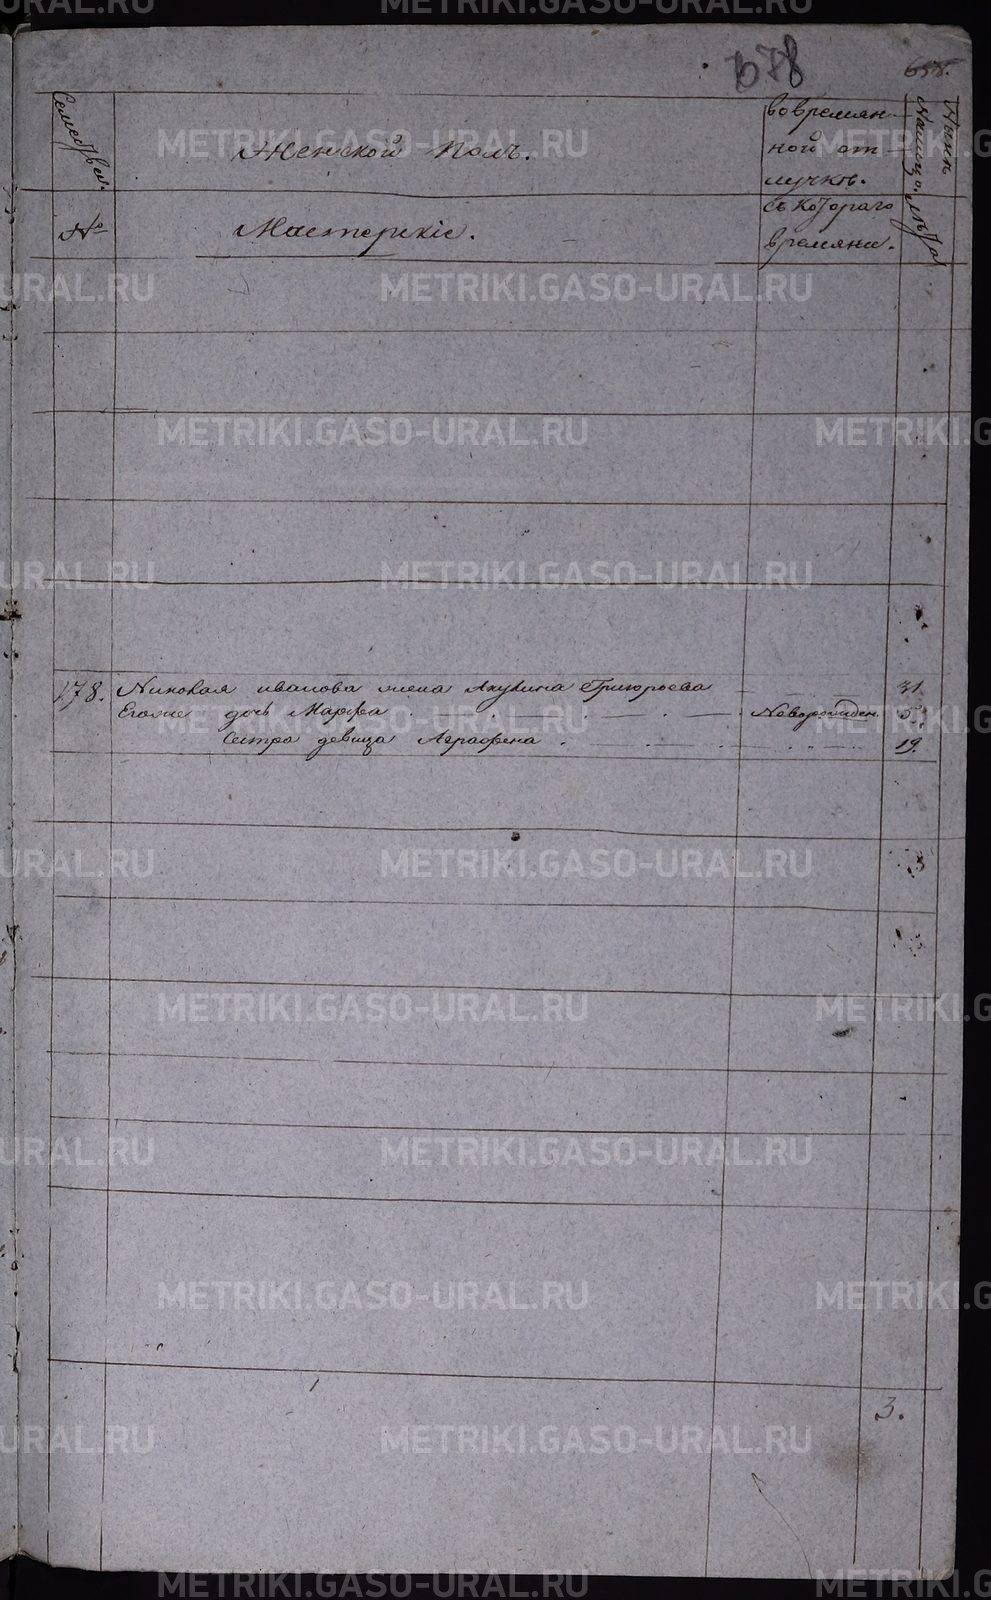 678
658.
Семейства.
№
Женской Полъ.
Мастерскіе.
во времян
ной от
лучке.
съ котораго
времяни.
Ныне
налицо.
лета
178. Николая иванова жена Акулина Григорьева 31.
Егоже дочь Марфа Новорожден.
Сестра девица Аграфена 19.
3.
METRIKI.GASO-URAL.RU